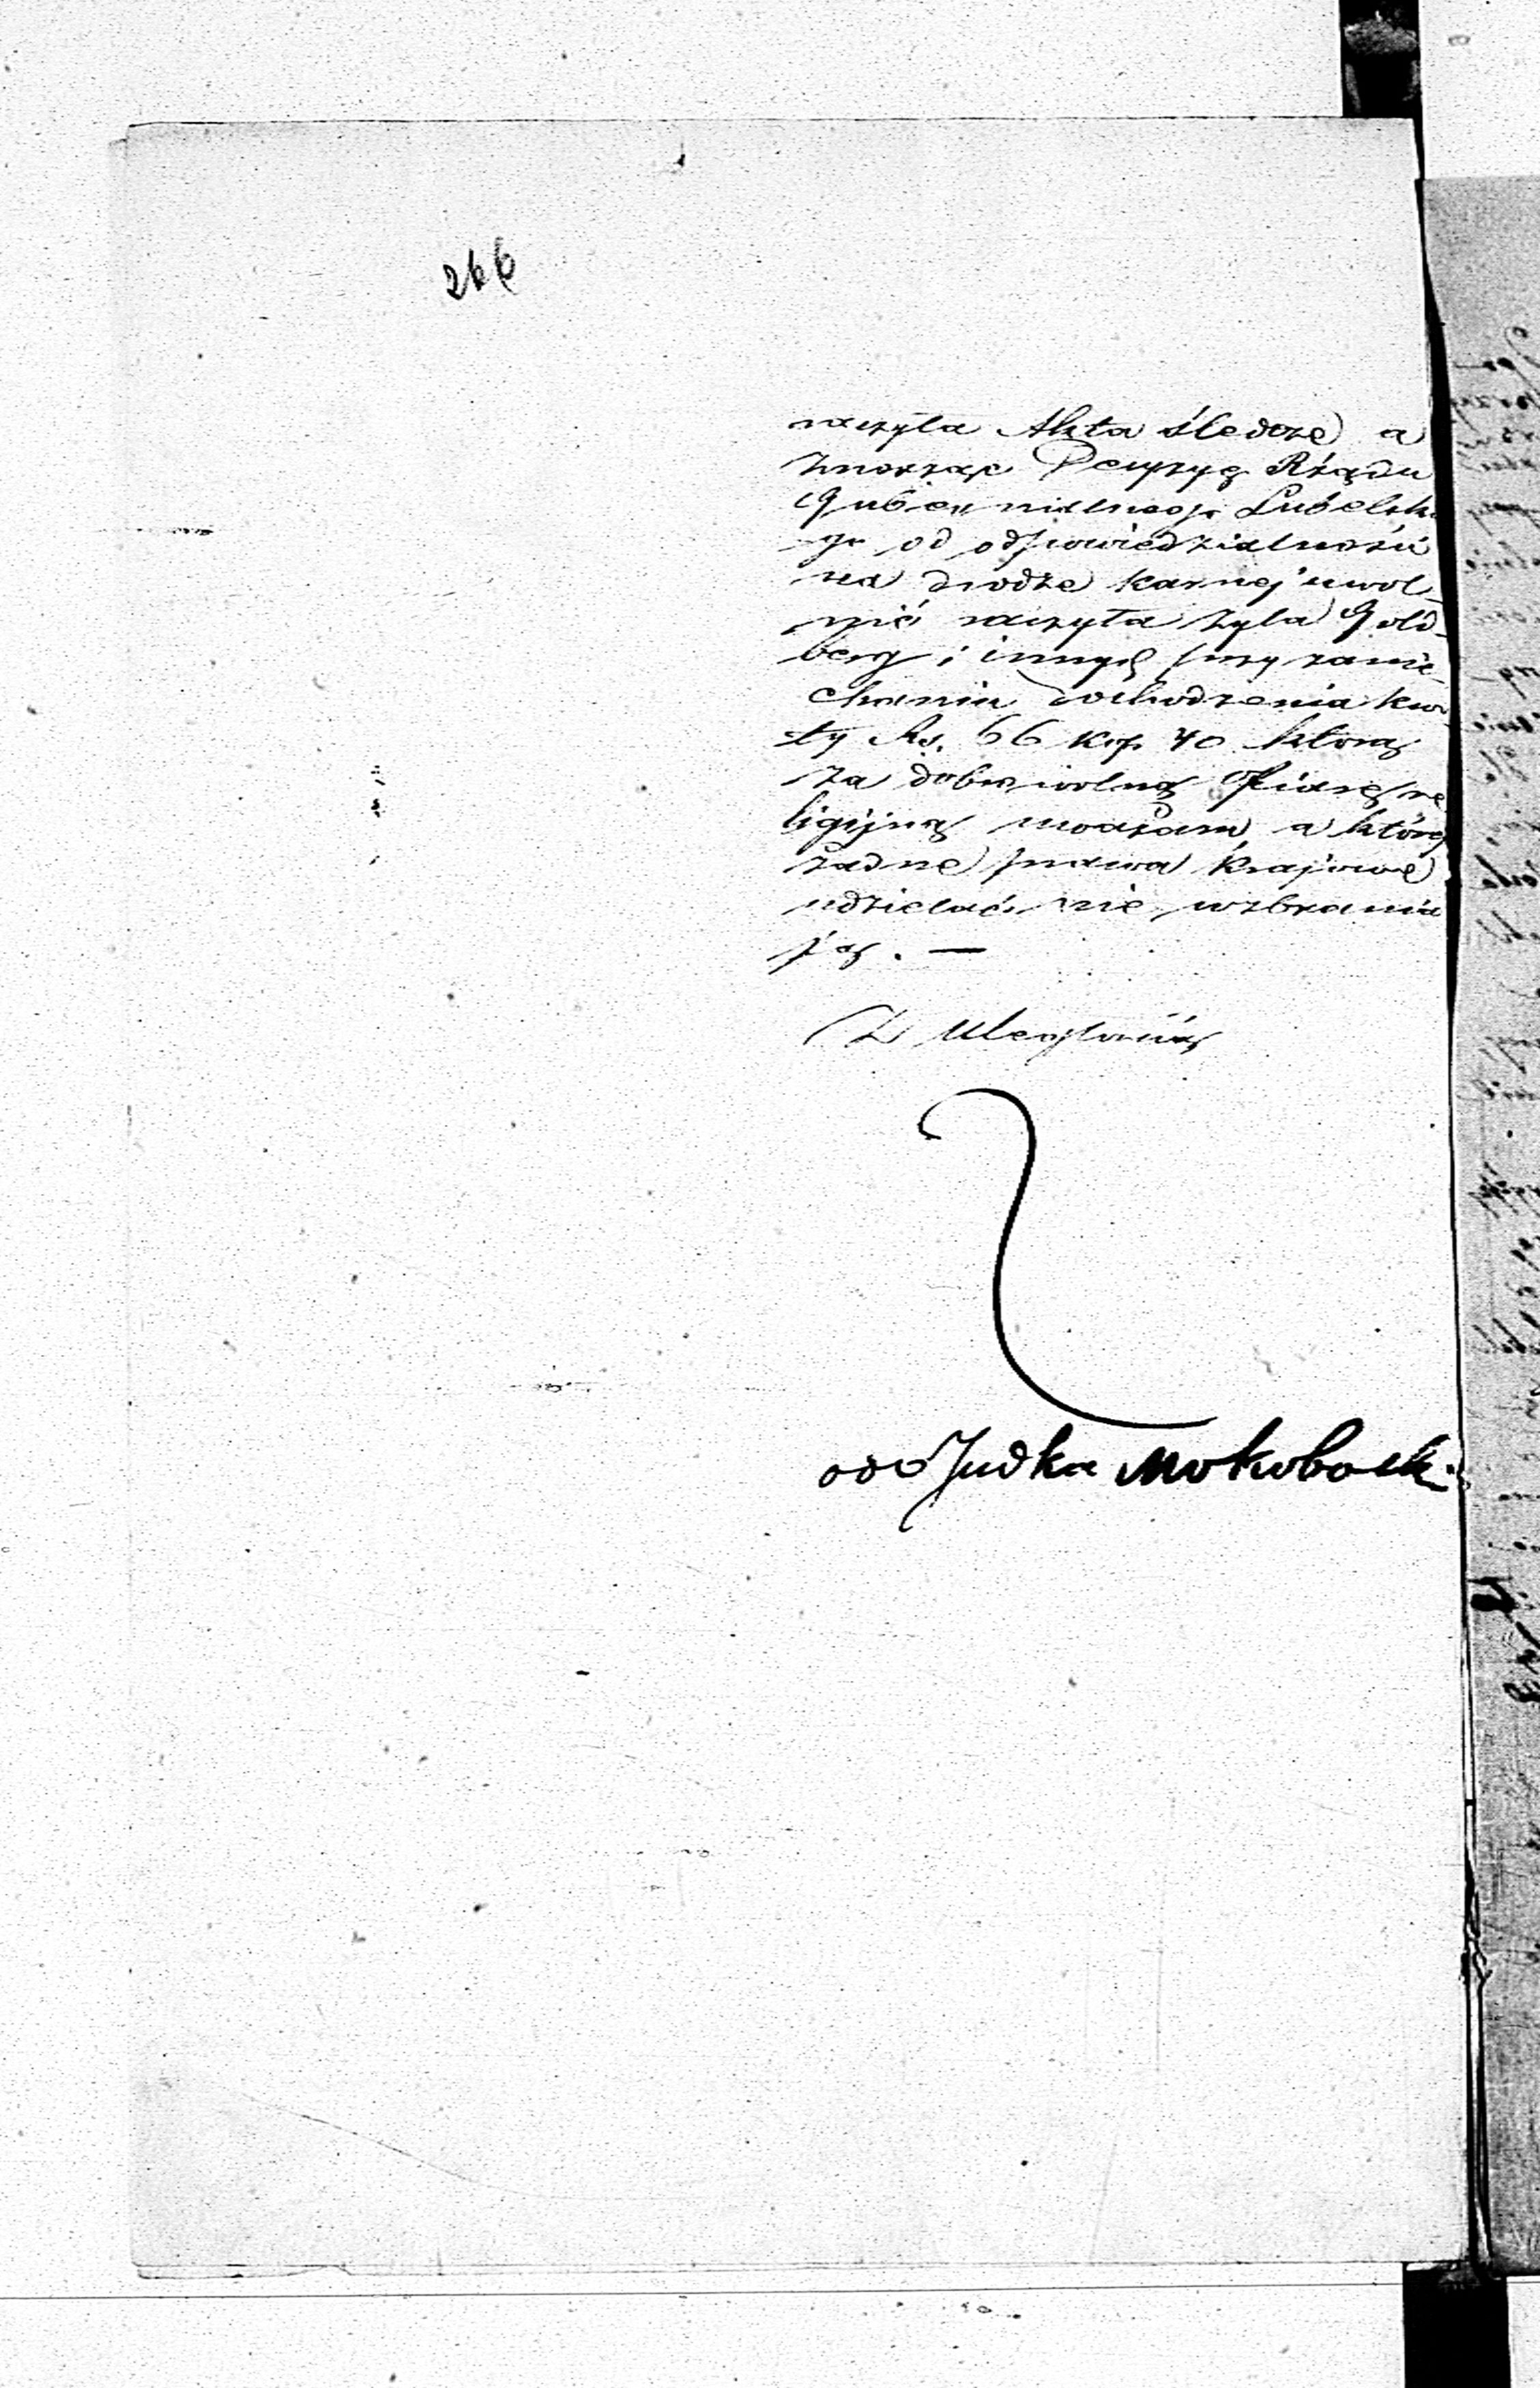 266
raczyła Akta śledcze a
znosząc Decyzyę Rządu
Gubernialnego Lubelski
go od odpowiedzialności
na drodze karnej uwol-
nić raczyła Zyla Gold-
berg i innych przy zanie-
chaniu dochodzenia kwo
ty Rs. 66 kop 40 którą
za dobrowolną Ofiarę re
ligijną uważam, a którą
żadne prawa krajowe
udzielać nie wzbrania
ją. —
Z Uległością
Judka Mokobock